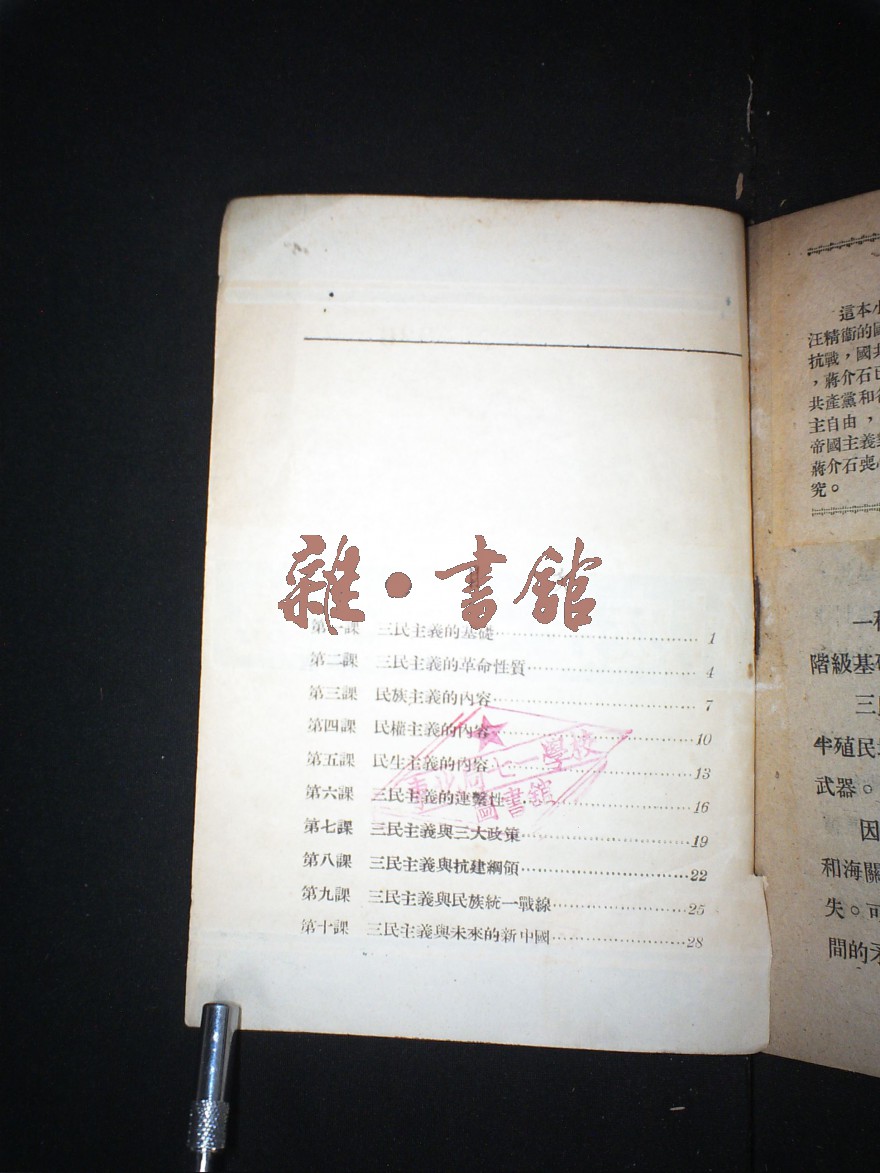 雜·書館
第一課 三民主義的基礎 1
第二課 三民主義的革命性質 4
第三課 民族主義的內容 7
第四課 民權主義的內容 10
第五課 民生主義的內容 13
第六課 三民主義的連繫性 16
第七課 三民主義與三大政策 19
第八課 三民主義與抗建綱領 22
第九課 三民主義與民族統一戰線 25
第十課 三民主義與未來的新中國 28
七一學校
圖書舘
這本小
汪精衞的國
抗戰,國共
,蔣介石已
共產黨和
主自由,
帝國主義
蔣介石喪
究。
一
階級基礎
三
半殖民
武器。
因
和海關
失。可
間的矛